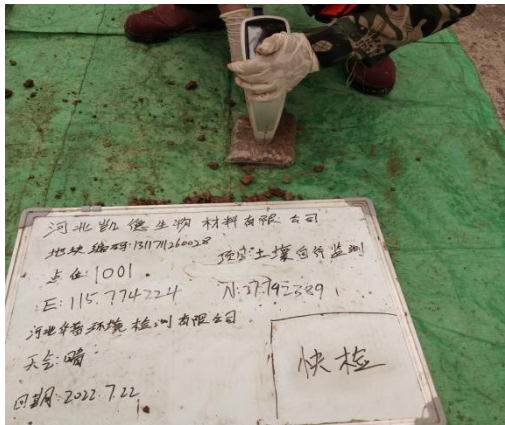 河北凯德生物材料有限公司
地块编码:1311711260028
项目:土壤自行监测
点位:1001
E:115.774224
N:37.792389
河北华茜环境检测有限公司
天气:晴
快检
日期:2022.7.22